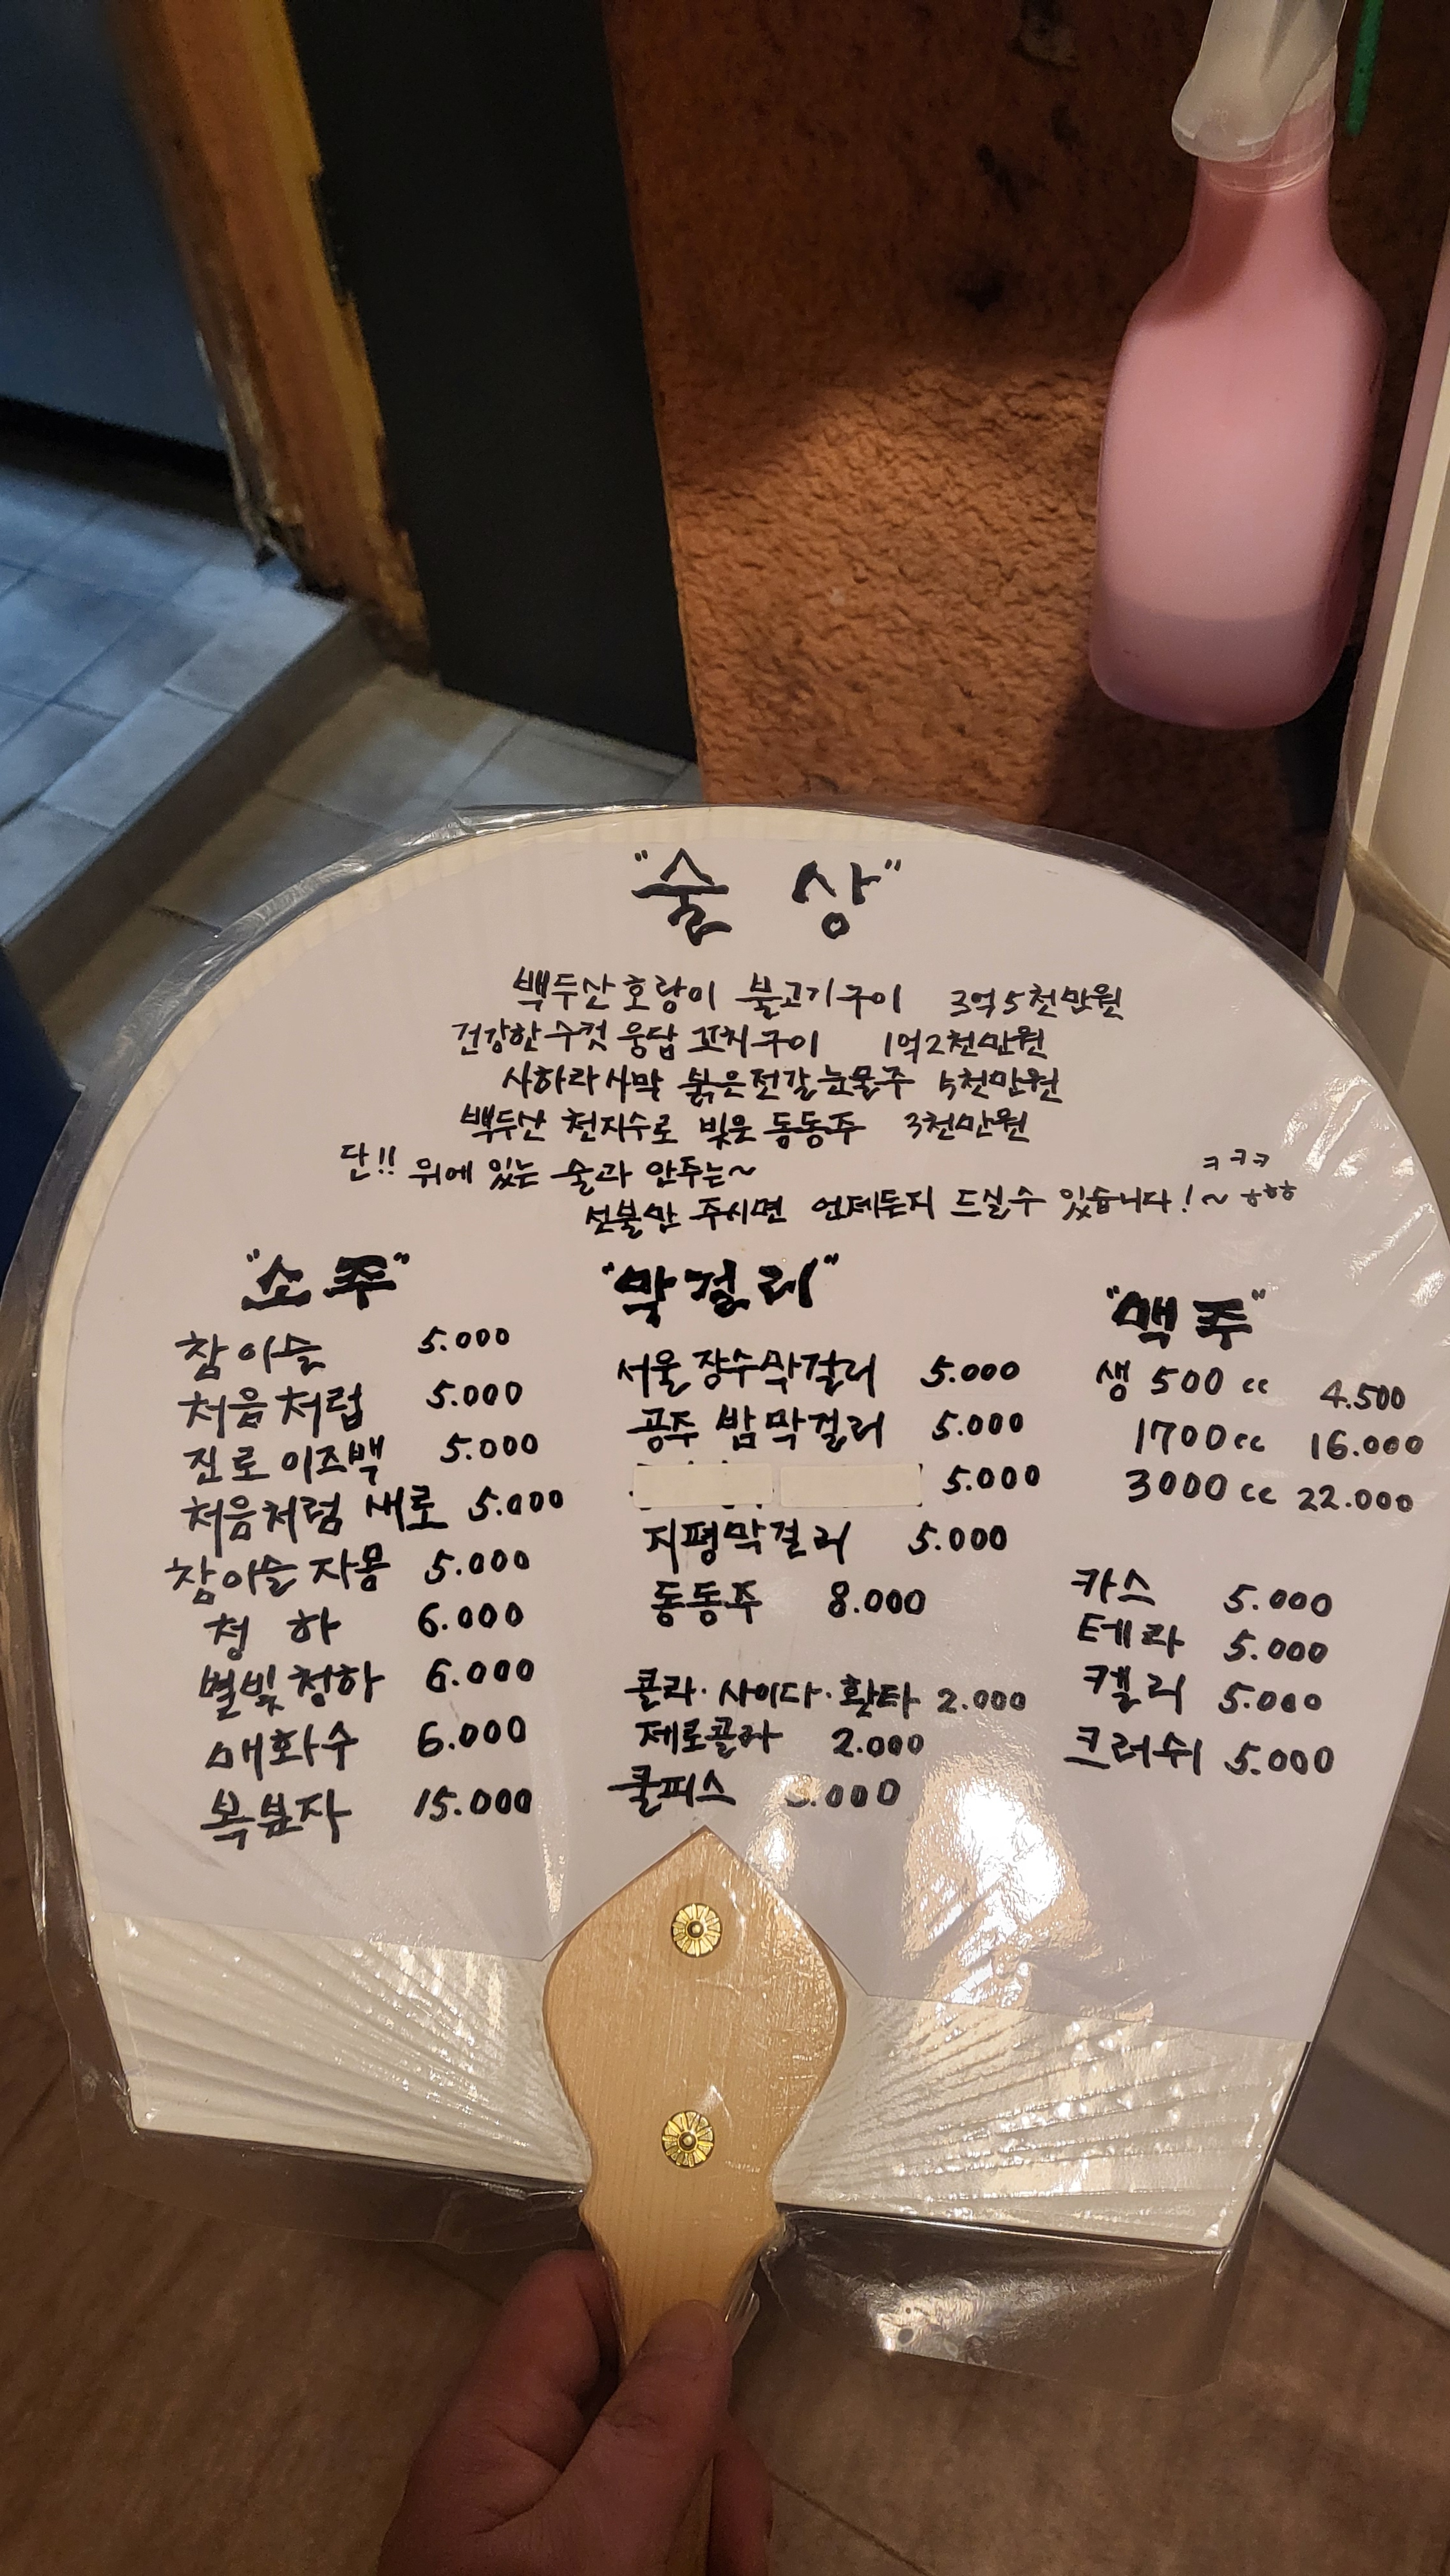 "술 상"
백두산 호랑이 불고기구이 3억5천만원
건강한 수컷 웅담 꼬치구이 1억2천만원
사하라사막 붉은전갈눈물주 5천만원
백두산 천지수로 빚은 동동주 3천만원
단!! 위에 있는 술과 안주는~
선불만 주시면 언제든지 드실수 있습니다!~ ㅎㅎㅎ
ㅋㅋㅋ
"소주"
참이슬 5.000
처음처럼 5.000
진로이즈백 5.000
처음처럼 새로 5.000
참이슬자몽 5.000
청 하 6.000
별빛청하 6.000
매화수 6.000
복분자 15.000
"막걸리"
서울장수막걸리 5.000
공주 밤막걸리 5.000
5.000
지평막걸리 5.000
동동주 8.000
콜라·사이다·환타 2.000
제로콜라 2.000
쿨피스 .000
"맥주"
생 500cc 4.500
1700cc 16.000
3000cc 22.000
카스 5.000
테라 5.000
캘리 5.000
크러쉬 5.000